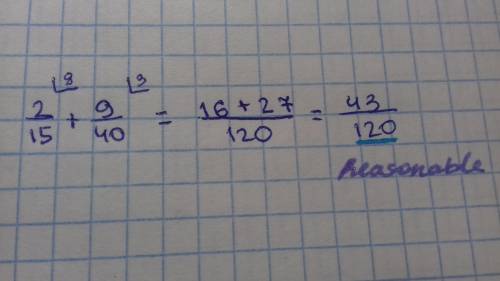 2/15 ⌊8 + 9/40 ⌊3 = 16 + 27/120 = 43/120
Reasonable